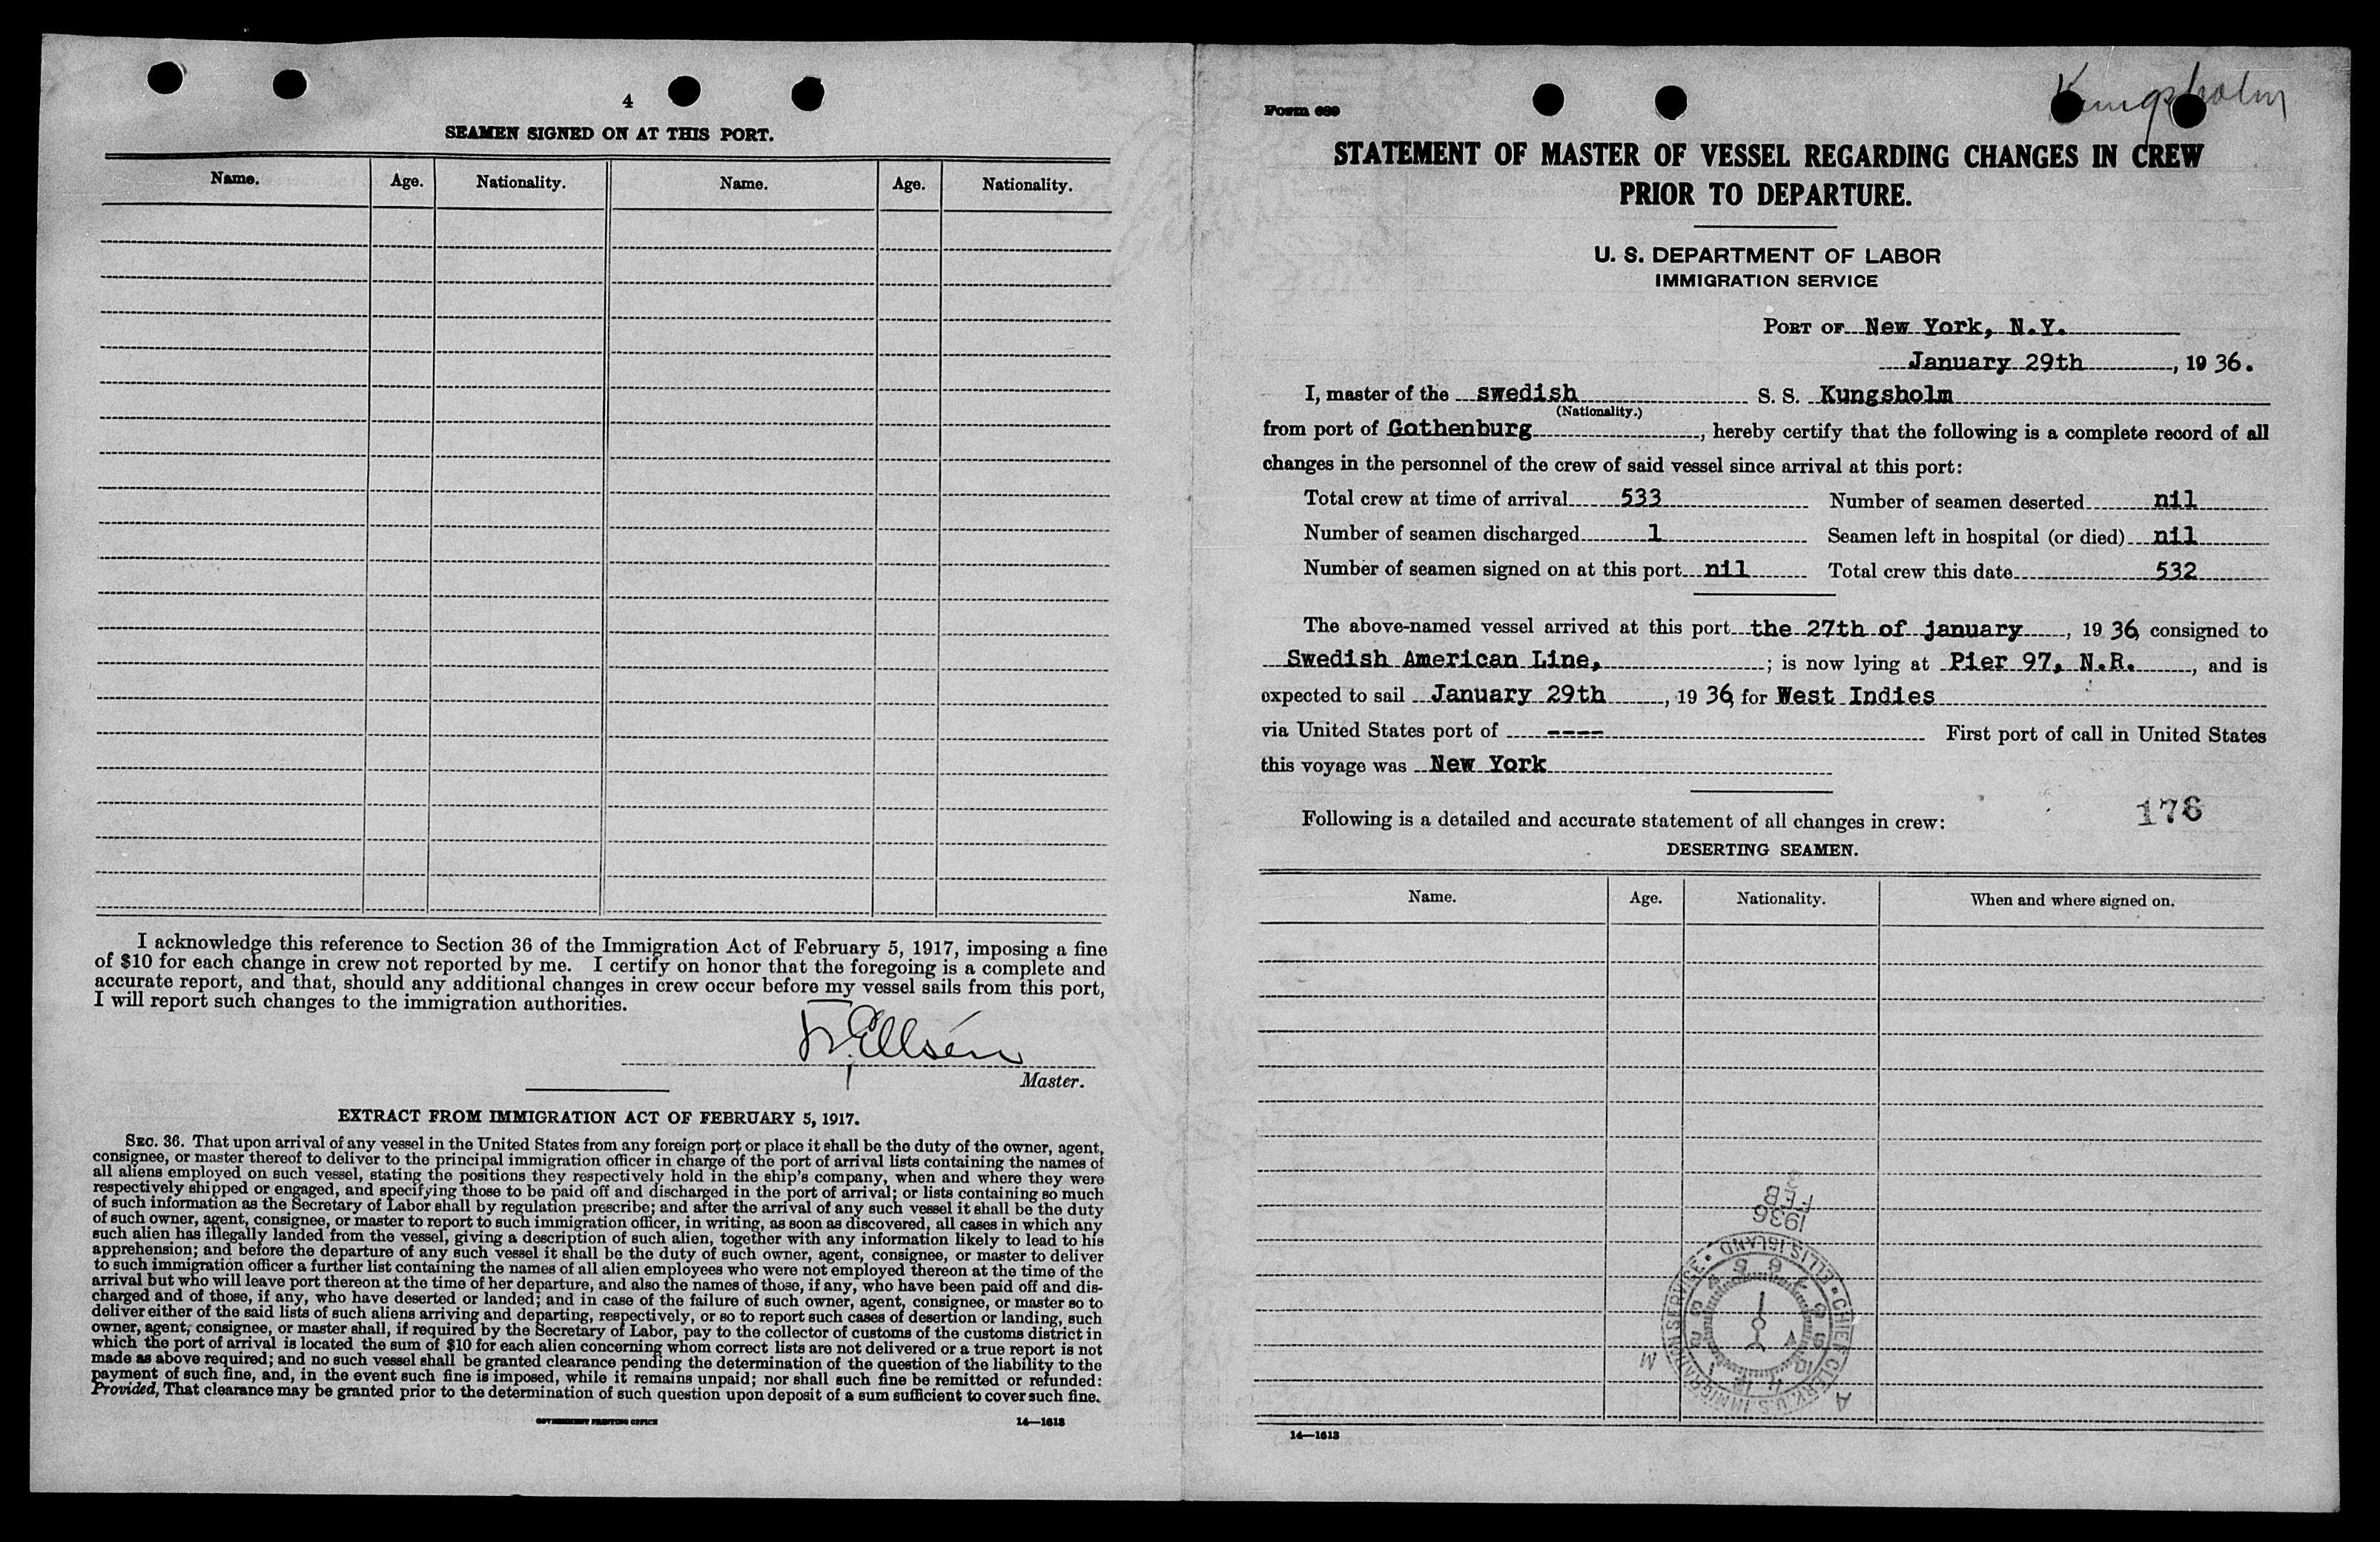 4
SEAMEN SIGNED ON AT THIS PORT.
Name. Age. Nationality. Name. Age. Nationality.
I acknowledge this reference to Section 36 of the Immigration Act of February 5, 1917, imposing a fine
of $10 for each change in crew not reported by me. I certify on honor that the foregoing is a complete and
accurate report, and that, should any additional changes in crew occur before my vessel sails from this port,
I will report such changes to the immigration authorities.
Ellsén
Master.
EXTRACT FROM IMMIGRATION ACT OF FEBRUARY 5, 1917.
SEC. 36. That upon arrival of any vessel in the United States from any foreign port or place it shall be the duty of the owner, agent,
consignee, or master thereof to deliver to the principal immigration officer in charge of the port of arrival lists containing the names of
all aliens employed on such vessel, stating the positions they respectively hold in the ship's company, when and where they were
respectively shipped or engaged, and specifying those to be paid off and discharged in the port of arrival; or lists containing so much
of such information as the Secretary of Labor shall by regulation prescribe; and after the arrival of any such vessel it shall be the duty
of such owner, agent, consignee, or master to report to such immigration officer, in writing, as soon as discovered, all cases in which any
such alien has illegally landed from the vessel, giving a description of such alien, together with any information likely to lead to his
apprehension; and before the departure of any such vessel it shall be the duty of such owner, agent, consignee, or master to deliver
to such immigration officer a further list containing the names of all alien employees who were not employed thereon at the time of the
arrival but who will leave port thereon at the time of her departure, and also the names of those, if any, who have been paid off and dis-
charged and of those, if any, who have deserted or landed; and in case of the failure of such owner, agent, consignee, or master so to
deliver either of the said lists of such aliens arriving and departing, respectively, or so to report such cases of desertion or landing, such
owner, agent, consignee, or master shall, if required by the Secretary of Labor, pay to the collector of customs of the customs district in
which the port of arrival is located the sum of $10 for each alien concerning whom correct lists are not delivered or a true report is not
made as above required; and no such vessel shall be granted clearance pending the determination of the question of the liability to the
payment of such fine, and, in the event such fine is imposed, while it remains unpaid; nor shall such fine be remitted or refunded:
Provided, That clearance may be granted prior to the determination of such question upon deposit of a sum sufficient to cover such fine.
GOVERNMENT PRINTING OFFICE 14—1613
Kungsholm
Form 689
STATEMENT OF MASTER OF VESSEL REGARDING CHANGES IN CREW
PRIOR TO DEPARTURE.
U. S. DEPARTMENT OF LABOR
IMMIGRATION SERVICE
PORT OF New York, N.Y.
January 29th, 1936.
I, master of the swedish S. S. Kungsholm
(Nationality.)
from port of Gothenburg, hereby certify that the following is a complete record of all
changes in the personnel of the crew of said vessel since arrival at this port:
Total crew at time of arrival 533 Number of seamen deserted nil
Number of seamen discharged 1 Seamen left in hospital (or died) nil
Number of seamen signed on at this port nil Total crew this date 532
The above-named vessel arrived at this port the 27th of january, 1936, consigned to
Swedish American Line, ; is now lying at Pier 97, N.R., and is
expected to sail January 29th, 1936, for West Indies
via United States port of ---- First port of call in United States
this voyage was New York
Following is a detailed and accurate statement of all changes in crew: 176
DESERTING SEAMEN.
Name. Age. Nationality. When and where signed on.
FEB
1936
CHIEF CLERK, U.S. IMMIGRATION SERVICE • ELLIS ISLAND •
A M
14—1613